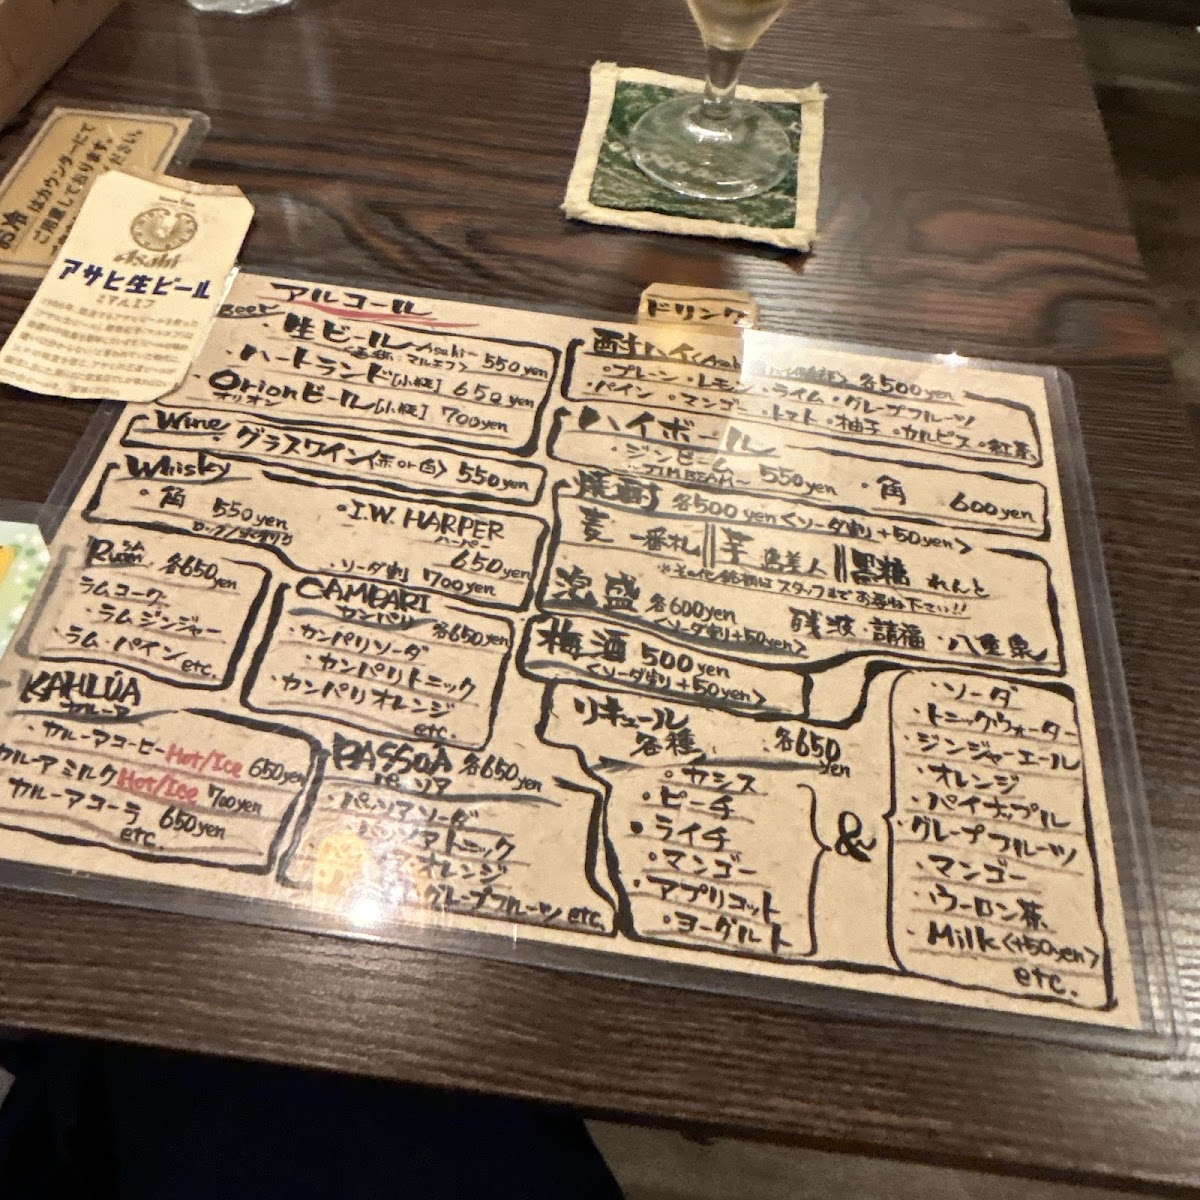 はカウンターにて
ご用意しております。
ください。
Asahi
アサヒ生ビール
アルコール
ドリンク
Beer
・生ビール ~Asahi~ 550yen
<通称:マルエフ>
・ハートランド[小瓶] 650yen
・Orionビール[小瓶] 700yen
オリオン
Wine
・グラスワイン<赤or白> 550yen
Whisky
・角 550yen
・I.W. HARPER
ハーパー
650yen
・ソーダ割 700yen
Rum 各650yen
ラム
ラムコーク
・ラムジンジャー
・ラム・パイン etc.
CAMPARI
カンパリ 各650yen
・カンパリソーダ
・カンパリトニック
・カンパリオレンジ
etc.
KAHLÚA
カルーア
・カルーアコーヒー Hot/Ice 650yen
カルーアミルク Hot/Ice 700yen
カルーアコーラ 650yen
etc.
PASSOA 各650yen
パッソア
・パッソアソーダ
パッソアトニック
オレンジ
グレープフルーツ etc.
酎ハイ 各500yen
・プレーン・レモン・ライム・グレープフルーツ
・パイン・マンゴー・トマト・柚子・カルピス・紅茶
ハイボール
・ジンビーム 550yen ・角 600yen
~JIM BEAM~
焼酎 各500yen <ソーダ割+50yen>
麦 一番札 芋 黒糖 れんと
※その他銘柄はスタッフまでお尋ね下さい!!
泡盛 各600yen 残波・請福・八重泉
<ソーダ割+50yen>
梅酒 500yen
<ソーダ割+50yen>
リキュール
各種 各650yen
・カシス
・ピーチ
・ライチ
・マンゴー
・アプリコット
・ヨーグルト
&
・ソーダ
・トニックウォーター
・ジンジャーエール
・オレンジ
・パイナップル
・グレープフルーツ
・マンゴー
・ウーロン茶
・Milk <+50yen>
etc.